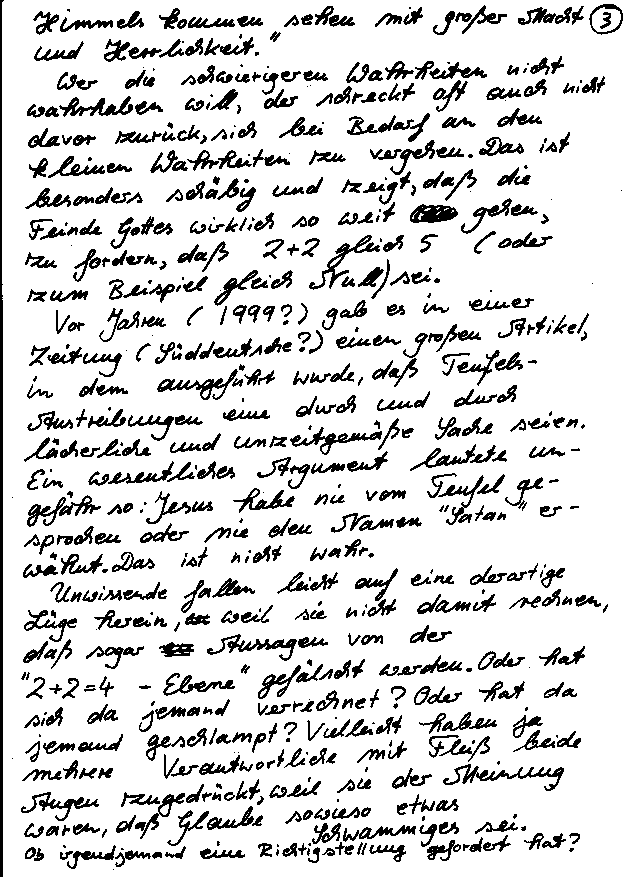 Himmels kommen sehen mit großer Macht ③
und Herrlichkeit."
Wer die schwierigeren Wahrheiten nicht
wahrhaben will, der schreckt oft auch nicht
davor zurück, sich bei Bedarf an den
kleinen Wahrheiten zu vergehen. Das ist
besonders schäbig und zeigt, daß die
Feinde Gottes wirklich so weit gehen,
zu fordern, daß 2+2 gleich 5 (oder
zum Beispiel gleich Null) sei.
Vor Jahren (1999?) gab es in einer
Zeitung (Süddeutsche?) einen großen Artikel,
in dem ausgeführt wurde, daß Teufels-
Austreibungen eine durch und durch
lächerliche und unzeitgemäße Sache seien.
Ein wesentliches Argument lautete un-
gefähr so: Jesus habe nie vom Teufel ge-
sprochen oder nie den Namen "Satan" er-
wähnt. Das ist nicht wahr.
Unwissende fallen leicht auf eine derartige
Lüge herein, weil sie nicht damit rechnen,
daß sogar Aussagen von der
"2+2=4 - Ebene" gefälscht werden. Oder hat
sich da jemand verrechnet? Oder hat da
jemand geschlampt? Vielleicht haben ja
mehrere Verantwortliche mit Fleiß beide
Augen zugedrückt, weil sie der Meinung
waren, daß Glaube sowieso etwas
Schwammiges sei.
Ob irgendjemand eine Richtigstellung gefordert hat?